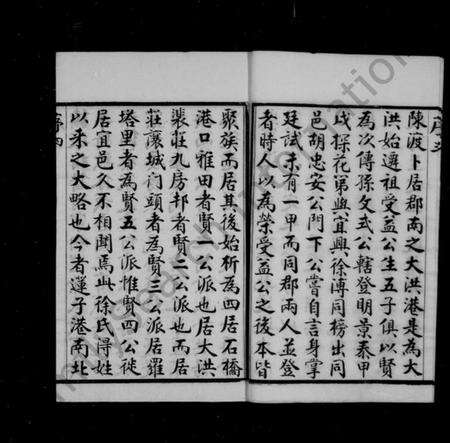 序文
陳渡卜居郡南之大洪港是為大
洪始遷祖受益公生五子俱以賢
為次傳孫文式公轄登明景泰甲
戌探花第與宜興徐溥同榜出同
邑胡忠安公門下公嘗自言身掌
廷試未有一甲而同郡兩人並登
者時人以為榮受益公之後本皆
聚族而居其後始析為四居石橋
港口雅田者賢一公派也居大洪
裴莊九房邨者賢二公派也而居
莊讓城门頭者為賢三公派居羅
塔里者為賢五公派惟賢四公徙
居宜邑久不相聞焉此徐氏得姓
以來之大略也今者運子港南北